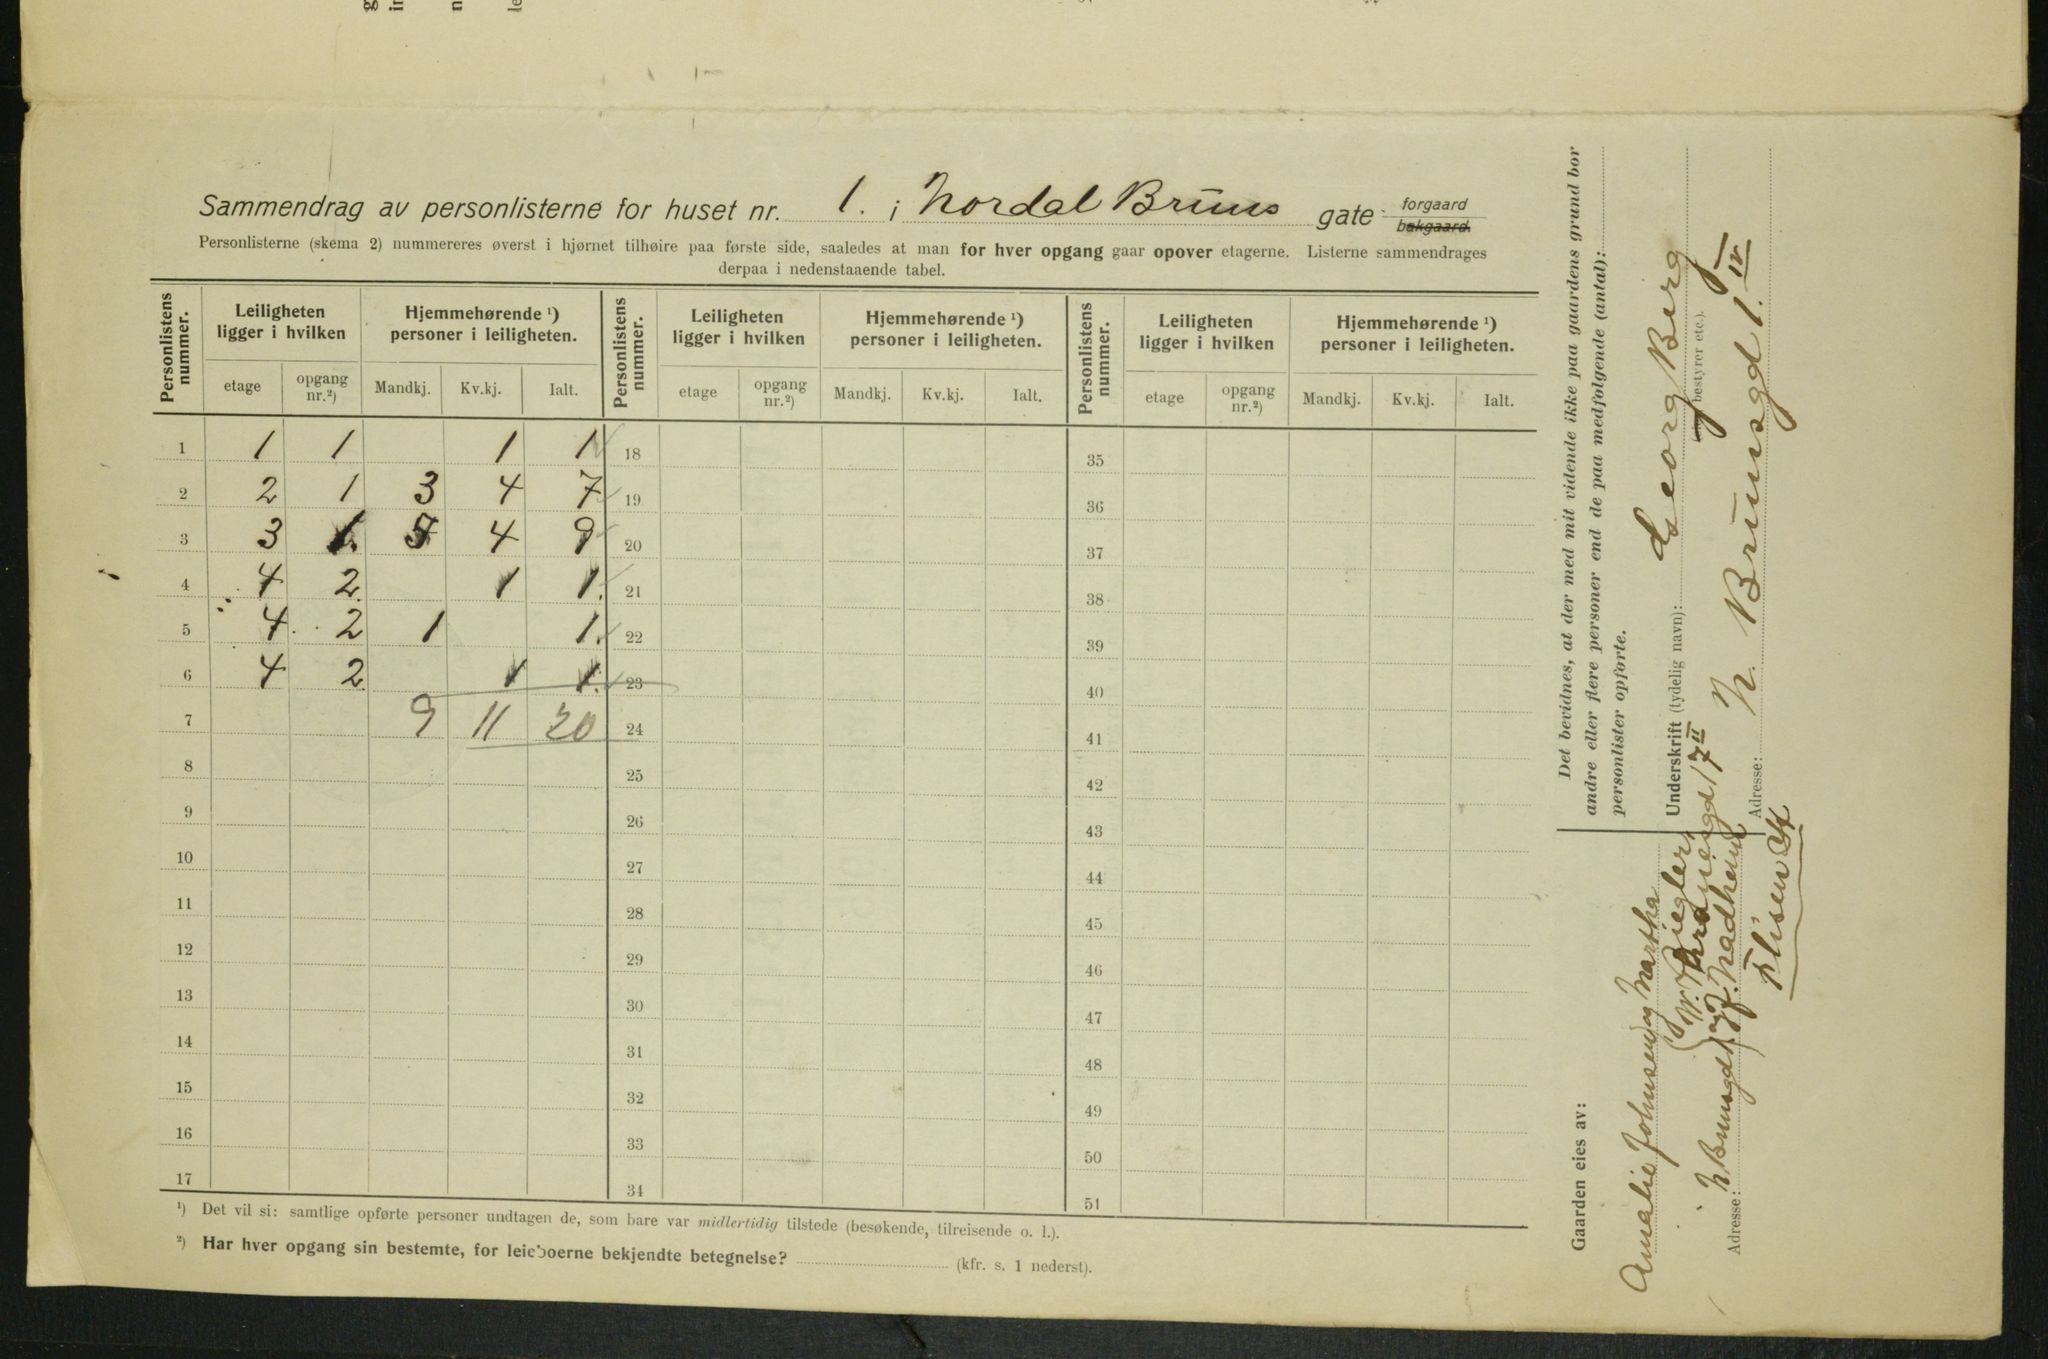 Sammendrag av personlisterne for huset nr. 1. i Nordal Bruns gate forgaard bakgaard.
Personlisterne (skema 2) nummereres øverst i hjørnet tilhøire paa første side, saaledes at man for hver opgang gaar opover etagerne. Listerne sammendrages
derpaa i nedenstaaende tabel.
Personlistens nummer. Leiligheten ligger i hvilken Hjemmehørende ¹) personer i leiligheten. Personlistens nummer. Leiligheten ligger i hvilken Hjemmehørende ¹) personer i leiligheten. Personlistens nummer. Leiligheten ligger i hvilken Hjemmehørende ¹) personer i leiligheten.
etage opgang nr.²) Mandkj. Kv.kj. Ialt. etage opgang nr.²) Mandkj. Kv.kj. Ialt. etage opgang nr.²) Mandkj. Kv.kj. Ialt.
1 1 1 1 1 18 35
2 2 1 3 4 7 19 36
3 3 1. 5 4 9 20 37
4 4 2 1 1. 21 38
5 4 2 1 1. 22 39
6 4 2 1 1. 23 40
7 9 11 20 24 41
8 25 42
9 26 43
10 27 44
11 28 45
12 29 46
13 30 47
14 31 48
15 32 49
16 33 50
17 34 51
¹) Det vil si: samtlige opførte personer undtagen de, som bare var midlertidig tilstede (besøkende, tilreisende o. l.).
²) Har hver opgang sin bestemte, for leieboerne bekjendte betegnelse? (kfr. s. 1 nederst).
Det bevidnes, at der med mit vidende ikke paa gaardens grund bor
andre eller flere personer end de paa medfølgende (antal):
personlister opførte.
Underskrift (tydelig navn): Georg Berg
bestyrer etc.).
Adresse: N. Brunsgd 1. IV
Gaarden eies av:
Amalie Johnsen og Martha
17 II
Adresse: N Brunsgd 1